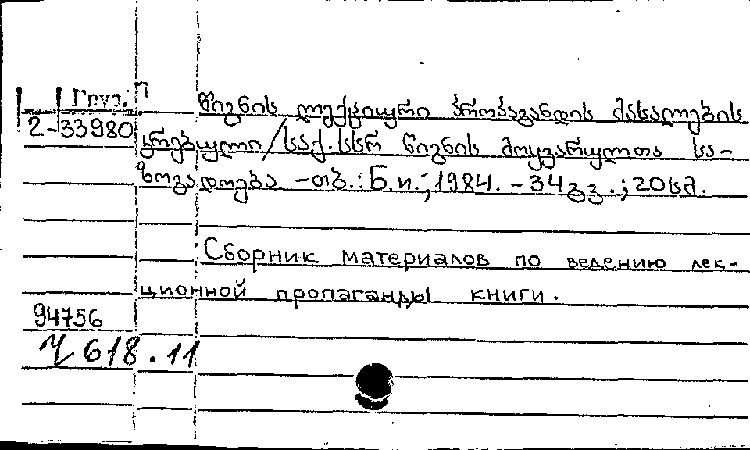 Груз.
2-33980
წიგნის ლექციური პროპაგანდის მასალების
კრებული/საქ.სსრ წიგნის მოყვარულთა სა-
ზოგადოება -თბ.: Б.и.; 1984. - 34 გვ.; 20 სმ.
Сборник материалов по ведению лек-
ционной пропаганды книги.
94756
618.11